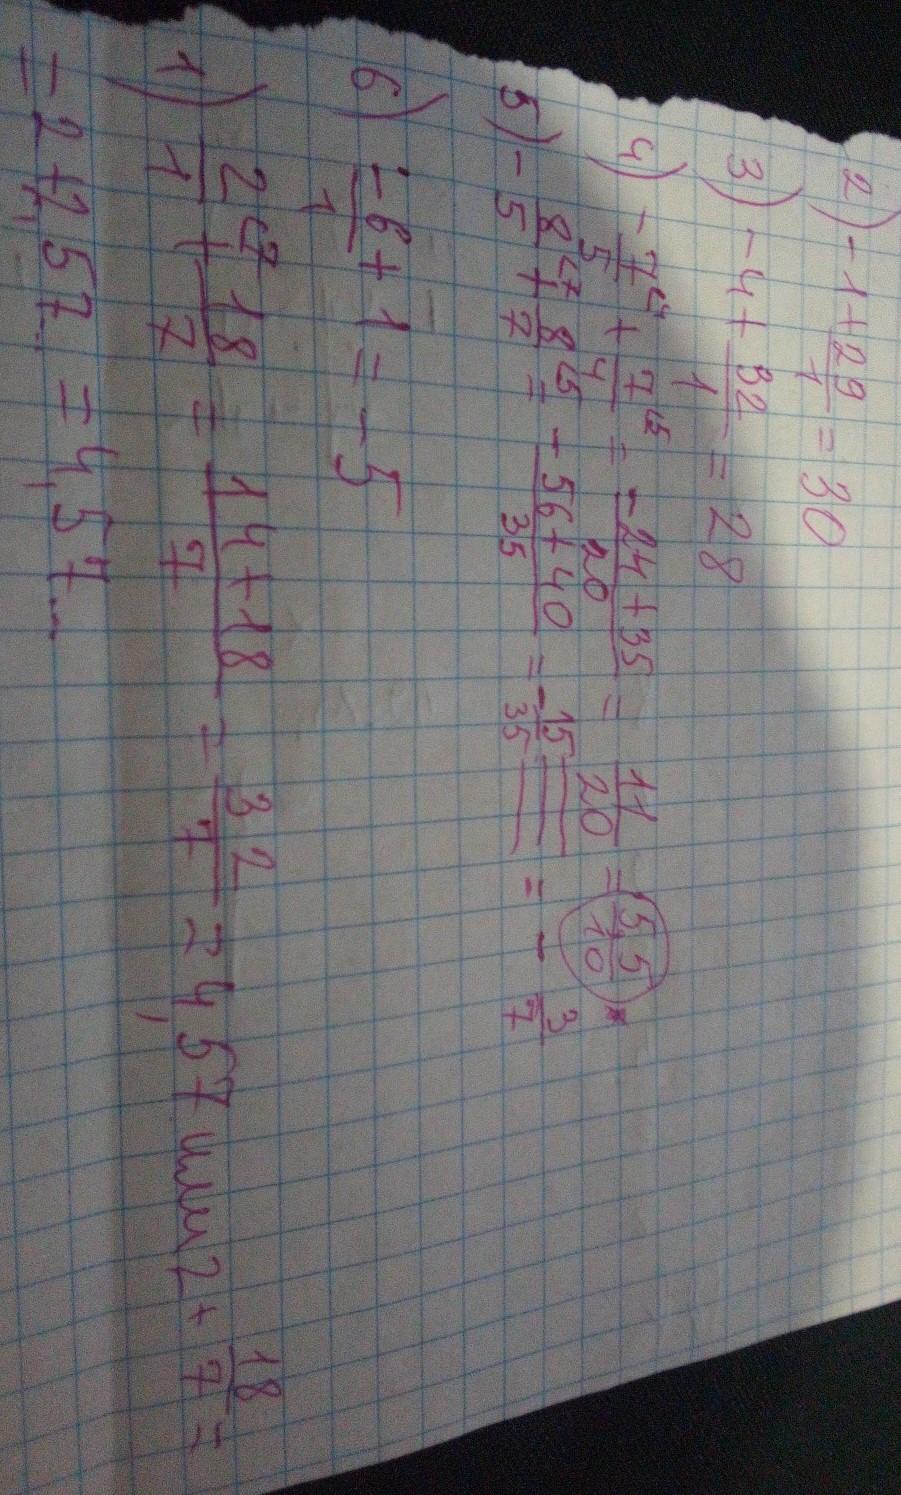 2) -1 + 29/1 = 30
3) -4 + 32/1 = 28
4) - 7/5 + 7/4 = - 24 + 35 / 20 = 11/20 = 5,5/10
5) - 8/5 + 8/7 = - 56 + 40 / 35 = - 15/35 = - 3/7
6) -6/1 + 1 = -5
1) 2/1 + 18/7 = 14 + 18 / 7 = 32/7 = 4,57 или 2 + 18/7 =
= 2 + 2,57.. = 4,57...